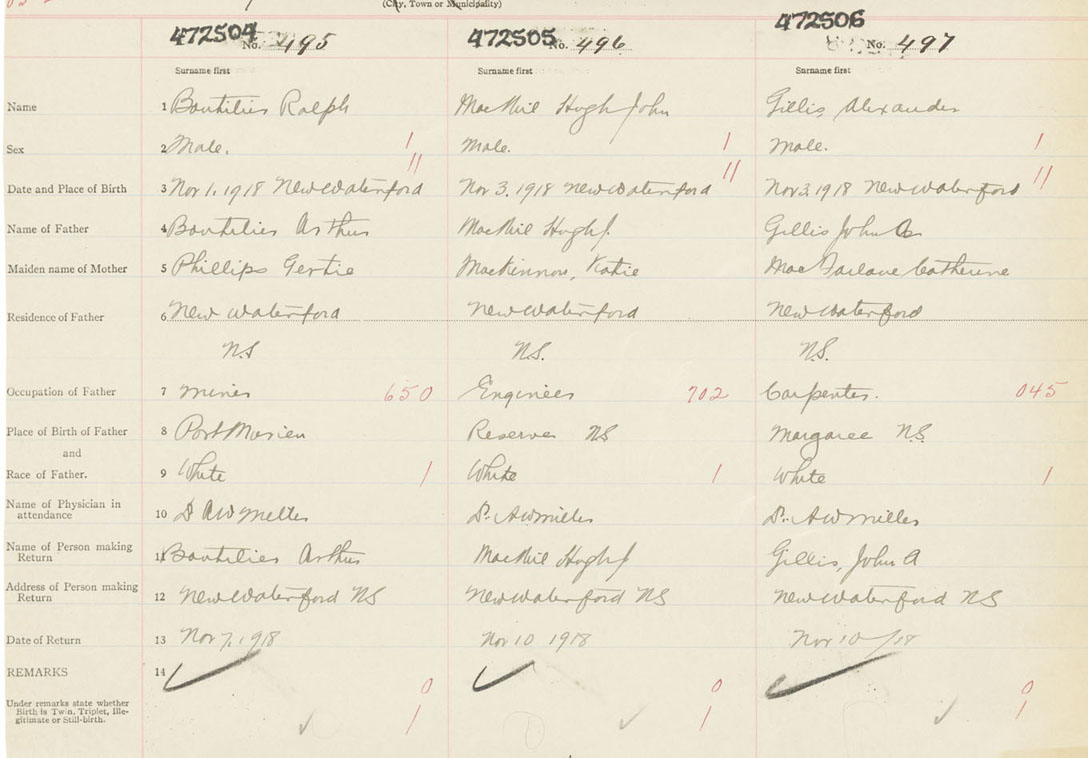 (City, Town or Municipality)
472504 No. 495 472505 No. 496 472506 No. 497
Surname first Surname first Surname first
Name 1 Boutilier Ralph MacNeil Hugh John Gillis, Alexander
Sex 2 Male. 1 Male. 1 Male. 1
11 11 11
Date and Place of Birth 3 Nov 1, 1918 New Waterford Nov 3. 1918 New Waterford Nov 3, 1918 New Waterford
Name of Father 4 Boutilier Arthur MacNeil Hugh J. Gillis John A
Maiden name of Mother 5 Phillips Gertie MacKinnon, Katie MacFarlane Catherine
Residence of Father 6 New Waterford New Waterford New Waterford
N.S N.S. N.S.
Occupation of Father 7 Miner 650 Engineer 702 Carpenter. 045
Place of Birth of Father 8 Port Morien Reserve NS Margaree N.S.
and
Race of Father. 9 White 1 White 1 White 1
Name of Physician in
attendance 10 Dr A W Miller Dr. A W Miller Dr. A W Miller
Name of Person making
Return 11 Boutilier Arthur MacNeil Hugh J Gillis, John A
Address of Person making
Return 12 New Waterford NS New Waterford NS New Waterford NS
Date of Return 13 Nov 7, 1918 Nov 10 1918 Nov 10/18
REMARKS 14
0 0 0
Under remarks state whether
Birth is Twin, Triplet, Ille-
gitimate or Still-birth. 1 1 1